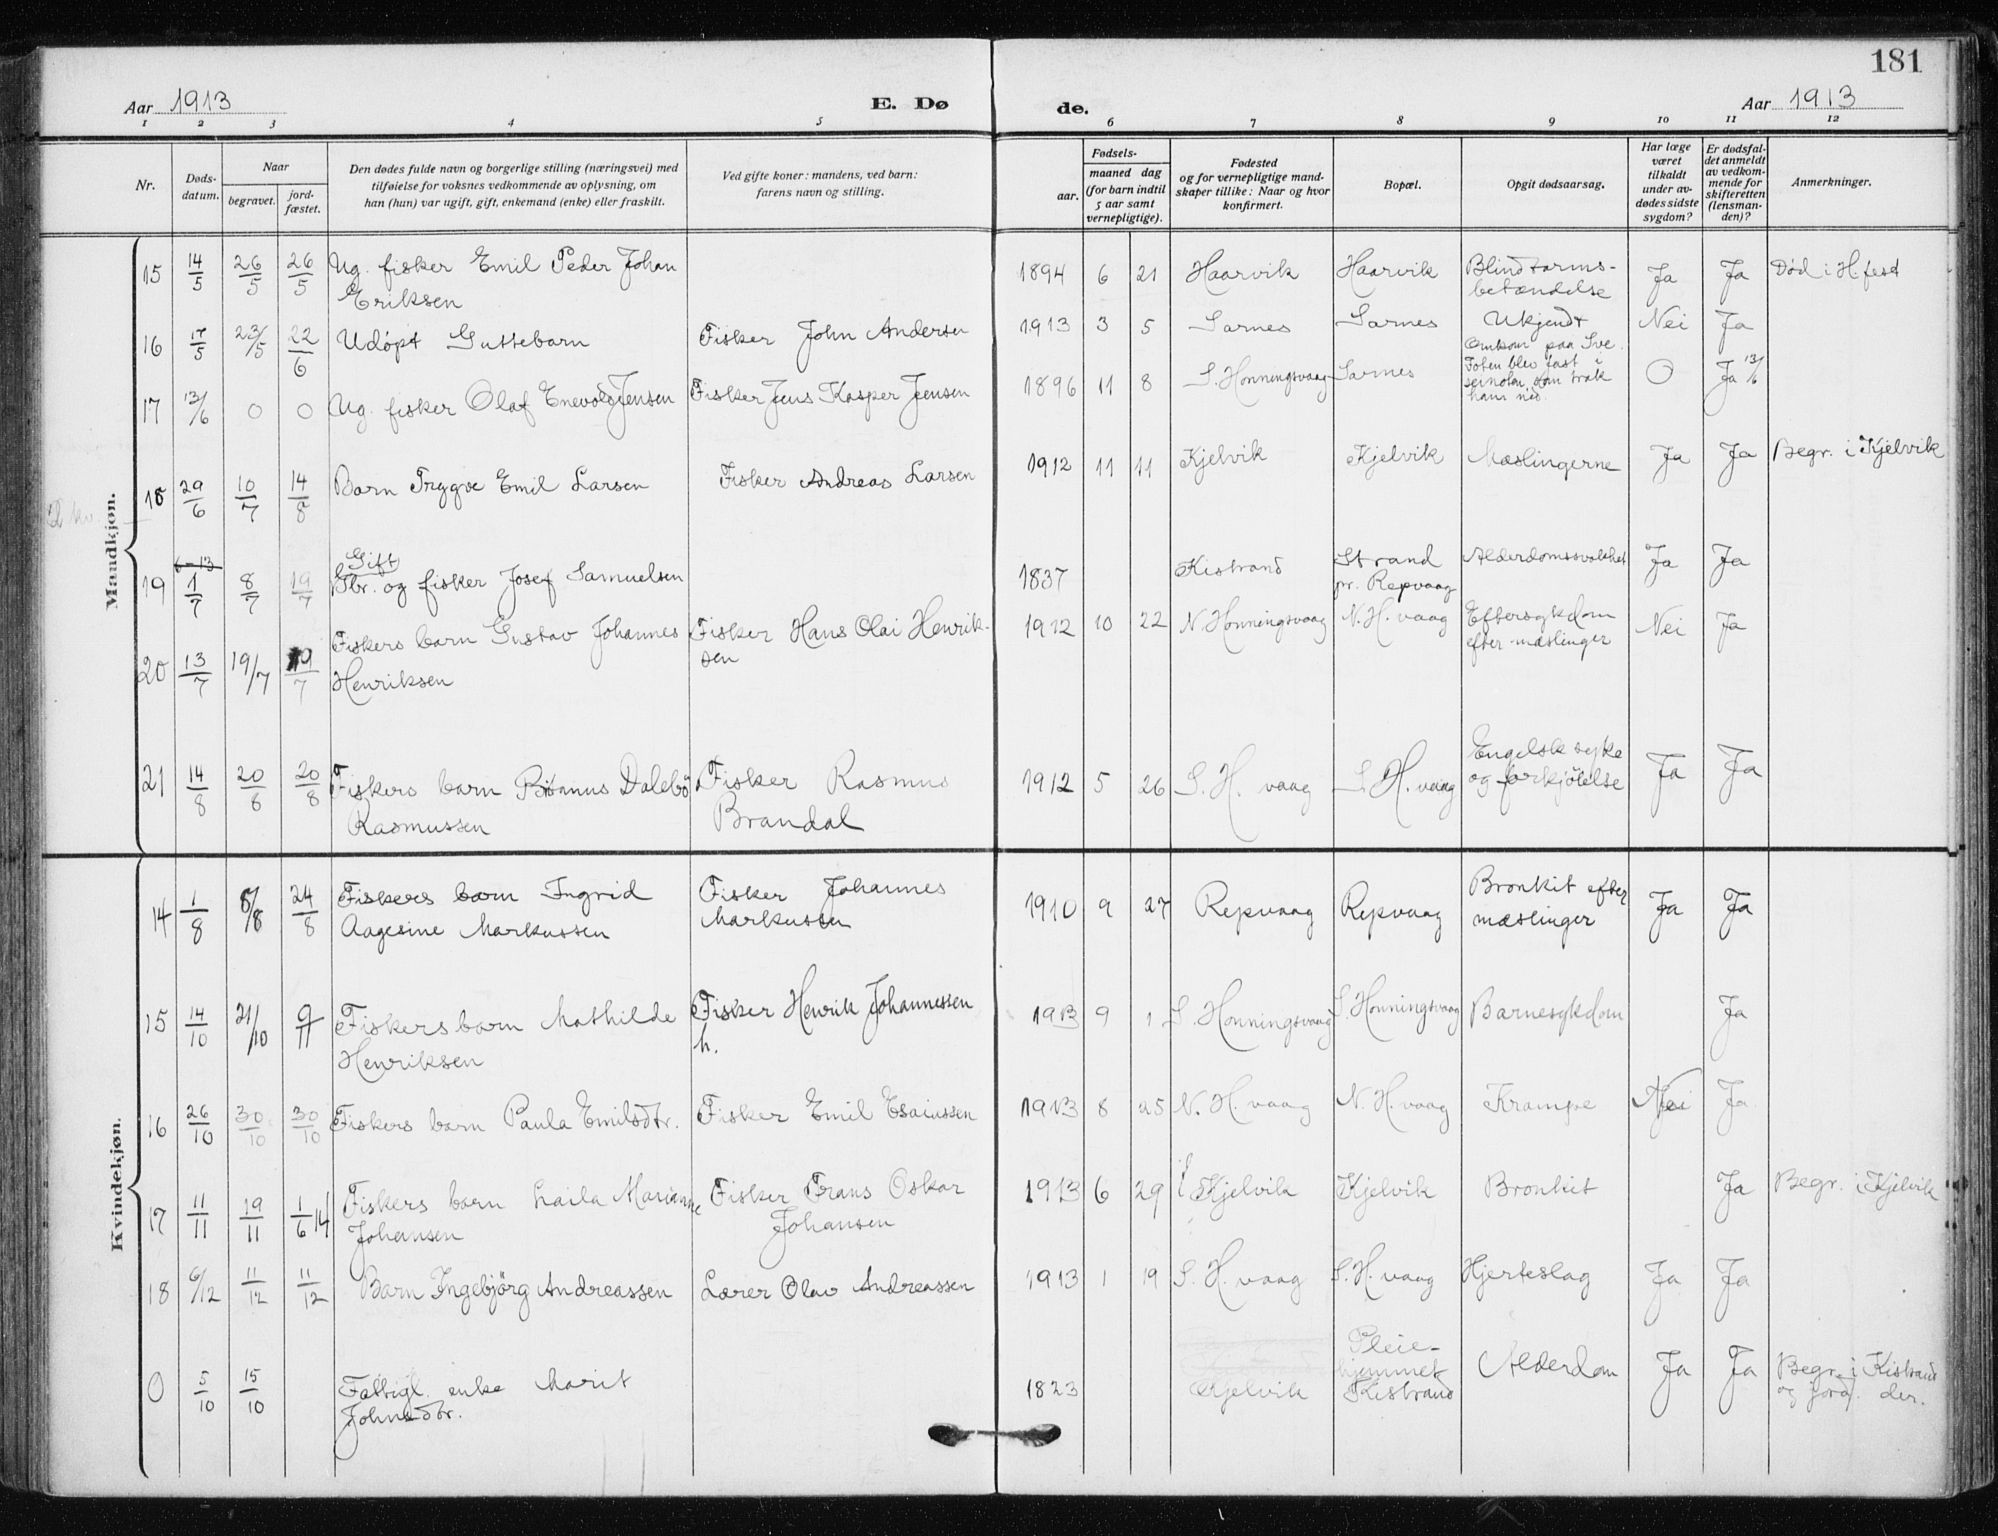 181
Aar 1913 E. Dø de. Aar 1913
1 2 3 4 5 6 7 8 9 10 11 12
Nr.
Døds-
datum.
Naar
begravet.
jord-
fæstet.
Den dødes fulde navn og borgerlige stilling (næringsvei) med
tilføielse for voksnes vedkommende av oplysning, om
han (hun) var ugift, gift, enkemand (enke) eller fraskilt.
Ved gifte koner: mandens, ved barn:
farens navn og stilling.
Fødsels-
aar.
maaned dag
(for barn indtil
5 aar samt
vernepligtige).
Fødested
og for vernepligtige mand-
skaper tillike: Naar og hvor
konfirmert.
Bopæl.
Opgit dødsaarsag.
Har læge
været
tilkaldt
under av-
dødes sidste
sygdom?
Er dødsfal-
det anmeldt
av vedkom-
mende for
skifteretten
(lensman-
den)?
Anmerkninger.
Mandkjøn.
15 14/5 26/5 26/5 Ug. fisker Emil Peder Johan 1894 6 21 Haarvik Haarvik Blindtarms- Ja Ja Død i H.fest
Eriksen betændelse
16 17/5 23/5 22/6 Udøpt Guttebarn Fisker John Andersen 1913 3 5 Sarnes Sarnes Ukjendt Nei Ja
17 13/6 0 0 Ug. fisker Olaf Enevold Jensen Fisker Jens Kasper Jensen 1896 11 8 S. Honningsvaag Sarnes Omkom paa Sve. O Ja 13/6
Foten blev fast i
seinoten, som trak
ham ned.
18 29/6 10/7 14/8 Barn Trygve Emil Larsen Fisker Andreas Larsen 1912 11 11 Kjelvik Kjelvik Mæslingerne Ja Ja Begr. i Kjelvik
6-13
Gift
19 1/7 8/7 19/7 Gbr. og fisker Josef Samuelsen 1837 Kistrand Strand Alderdomssvakhet Ja Ja
pr. Repvaag
20 13/7 19/7 19/7 Fiskers barn Gustav Johannes Fisker Hans Olai Henrik- 1912 10 22 N. Honningsvaag N. H. vaag Eftersykdom Nei Ja
Henriksen sen efter mæslinger
21 14/8 20/8 20/8 Fiskers barn Dalebö Fisker Rasmus 1912 5 26 S. H. vaag S. H. vaag Engelsk syke Ja Ja
Rasmussen Brandal og forkjölelse
Kvindekjøn.
14 1/8 8/8 24/8 Fiskers barn Ingrid Fisker Johannes 1910 9 27 Repvaag Repvaag Bronkit efter Ja Ja
Aagesine Markussen Markussen mæslinger
15 14/10 21/10 9/11 Fiskers barn Mathilde Fisker Henrik Johannessen 1913 9 1 S. Honningsvaag S. Honningsvaag Barnesykdom Ja
Henriksen h.
16 26/10 30/10 30/10 Fiskers barn Paula Emilsdtr. Fisker Emil Esaiassen 1913 8 25 N. H. vaag N. H. vaag Krampe Nei Ja
17 11/11 19/11 1/6 14 Fiskers barn Laila Marianne Fisker Frans Oskar 1913 6 29 Kjelvik Kjelvik Bronkit Ja Begr. i Kjelvik
Johansen Johansen
18 6/12 11/12 11/12 Barn Ingebjörg Andreassen Lærer Olav Andreassen 1913 1 19 S. H. vaag S. H. vaag Hjerteslag Ja Ja
0 5/10 15/10 Fattigl. enke Marit 1823 Kjelvik Pleie- Alderdom Ja Ja Begr. i Kistrand
Johnsdtr. hjemmet og jordf. der.
Kistrand